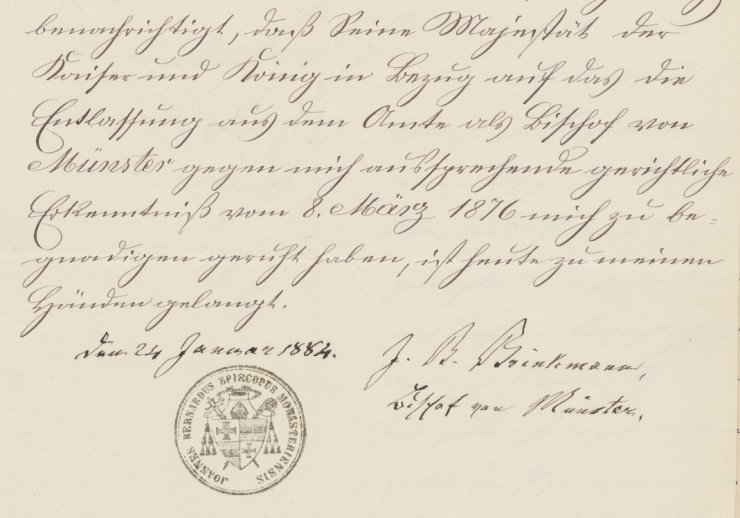 benachrichtigt, daß Seine Majestät der
Kaiser und König in Bezug auf das die
Entlassung aus dem Amte als Bischof von
Münster gegen mich aussprechende gerichtliche
Erkenntniß vom 8. März 1876 mich zu be-
gnadigen geruht haben, ist heute zu meinen
Händen gelangt.
Den 24 Januar 1884.
J. B. Brinkmann,
Bischof von Münster.
JOANNES BERNARDUS EPISCOPUS MONASTERIENSIS